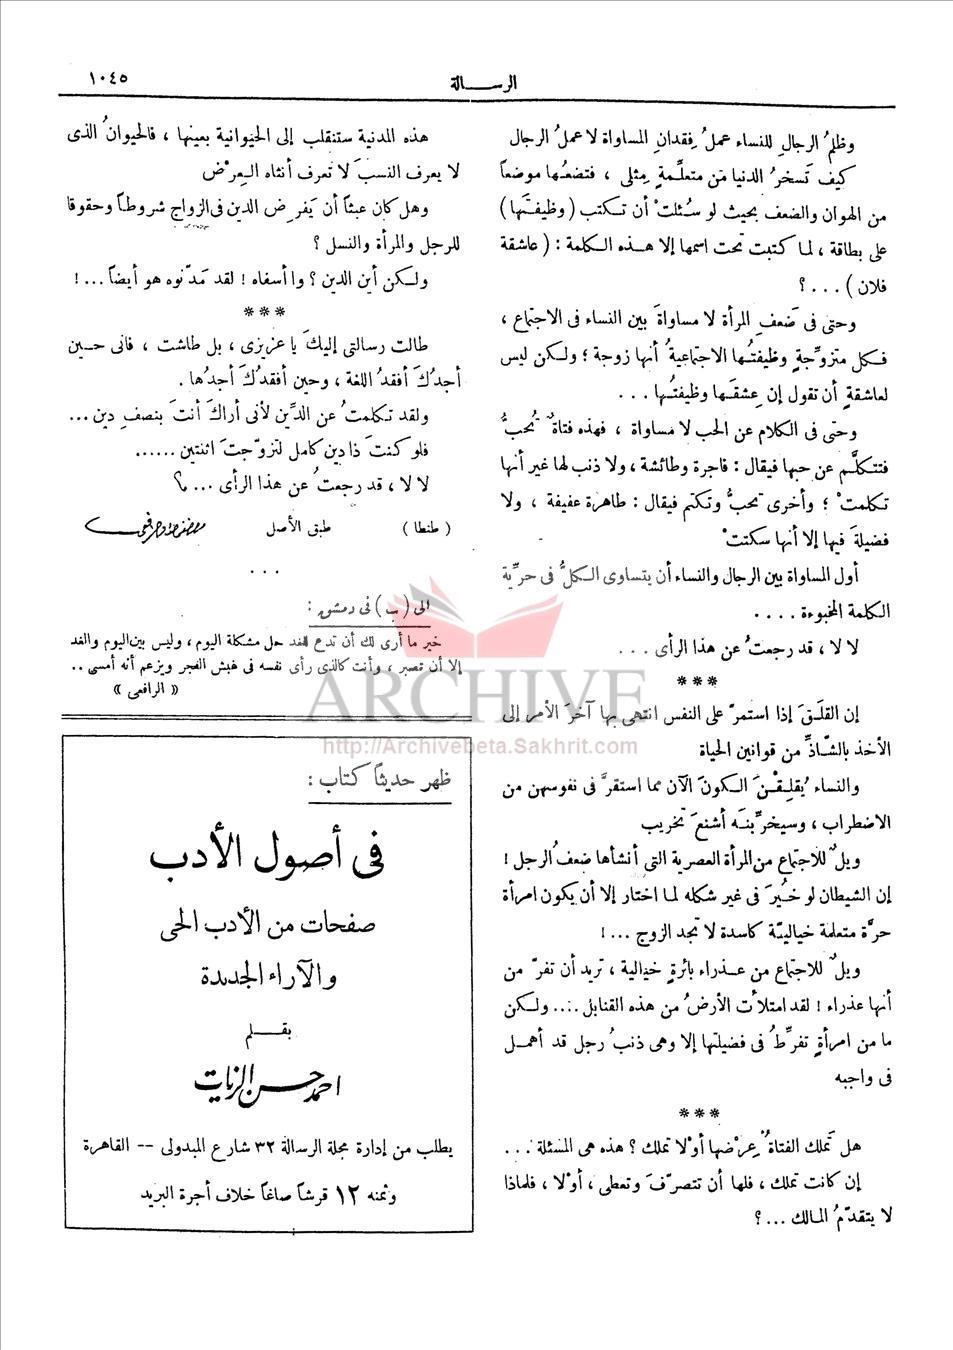 ١٠٤٥
الرســـالة
وظلمُ الرجالِ للنساء عملُ فِقدانِ المساواة لا عملُ الرجال
كيف تَسخرُ الدنيا مَن متعلِّمةٍ مِثلى ، فتضعُها موضعاً
من الهوان والضعف بحيث لو سُئلتْ أن تكتب ( وظيفتَها )
على بطاقة ، لما كتبت تحت اسمها إلا هذه الكلمة : ( عاشقة
فلان ) . . . ؟
وحتى فى ضَعفِ المرأة لا مساواةَ بين النساء فى الاجتماع ،
فكل متزوِّجةٍ وظيفتُها الاجتماعيةُ أنها زوجة ؛ ولكن ليس
لعاشقةٍ أن تقول إن عِشقَها وظيفتُها . . .
وحتى فى الكلام عن الحب لا مساواة ، فهذه فتاةٌ تُحبُّ
فتتكلَّم عن حبها فيقال : فاجرة وطائشة ، ولا ذنب لها غير أنها
تكلمتْ ؛ وأخرى تحبُّ وتكتم فيقال : طاهرة عفيفة ، ولا
فضيلةَ فيها إلا أنها سكتتْ
أول المساواة بين الرجال والنساء أن يتساوى الكلُّ فى حرِّية
الكلمة المخبوءة . . . .
لا لا ، قد رجعتُ عن هذا الرأى . . .
***
إن القلَقَ إذا استمرّ على النفس انتهى بها آخرَ الأمر إلى
الأخذ بالشاذِّ من قوانين الحياة
والنساء يُقلِقْنَ الكونَ الآن مما استقرَّ فى نفوسهن من
الاضطراب ، وسيخرِّبنَه أشنعَ تخريب
ويلٌ للاجتماع من المرأة العصرية التى أنشأها ضعفُ الرجل !
إن الشيطان لو خُيِّرَ فى غير شكله لما اختار إلا أن يكون امرأة
حرَّة متعلمة خياليَّة كاسدة لا تجد الزوج ... !
ويلٌ للاجتماع من عذراء بائرةٍ خيالية ، تريد أن تفرّ من
أنها عذراء ! لقد امتلأت الأرضُ من هذه القنابل .... ولكن
ما من امرأةٍ تفرِّطُ فى فضيلتها إلا وهى ذنبُ رجل قد أهمل
فى واجبه
***
هل تَملك الفتاةُ عِرْضها أو لا تملك ؟ هذه هى المسئلة . . .
إن كانت تملك ، فلها أن تتصرّفَ وتعطى ، أو لا ، فلماذا
لا يتقدّمُ المالك ... ؟
هذه المدنية ستنقلب إلى الحيوانية بعينها ، فالحيوانُ الذى
لا يعرف النسبَ لا تعرف أنثاه العِرْض
وهل كان عبثاً أن يَفرِض الدين فى الزواج شروطاً وحقوقا
للرجل والمرأة والنسل ؟
ولكن أين الدين ؟ وا أسفاه ! لقد مَدّنوه هو أيضاً ... !
***
طالت رسالتى إليكَ يا عزيزى ، بل طاشت ، فانى حين
أجدُكَ أفقدُ اللغة ، وحين أفقدُكَ أجدُها .
ولقد تكلمتُ عن الدِّين لأنى أراكَ أنتَ بنصفِ دين ...
فلو كنتَ ذا دين كامل لتزوّجتَ اثنتين ......
لا لا ، قد رجعتُ عن هذا الرأى ... ؟
( طنطا )
طبق الأصل
مصطفى صادق الرافعى
. . .
الى ( ب ) فى دمشق :
خير ما أرى لك أن تدع للغد حل مشكلة اليوم ، وليس بين اليوم والغد
إلا أن تصبر ، وأنت كالذى رأى نفسه فى غبش الفجر ويزعم أنه أمسى ..
« الرافعى »
ARCHIVE
http://Archivebeta.Sakhrit.com
ظهر حديثاً كتاب :
فى أصول الأدب
صفحات من الأدب الحى
والآراء الجديدة
بقـــلم
احمد حسن الزيات
يطلب من إدارة مجلة الرسالة ٣٢ شارع المبدولى -- القاهرة
وثمنه ١٢ قرشاً صاغاً خلاف أجرة البريد